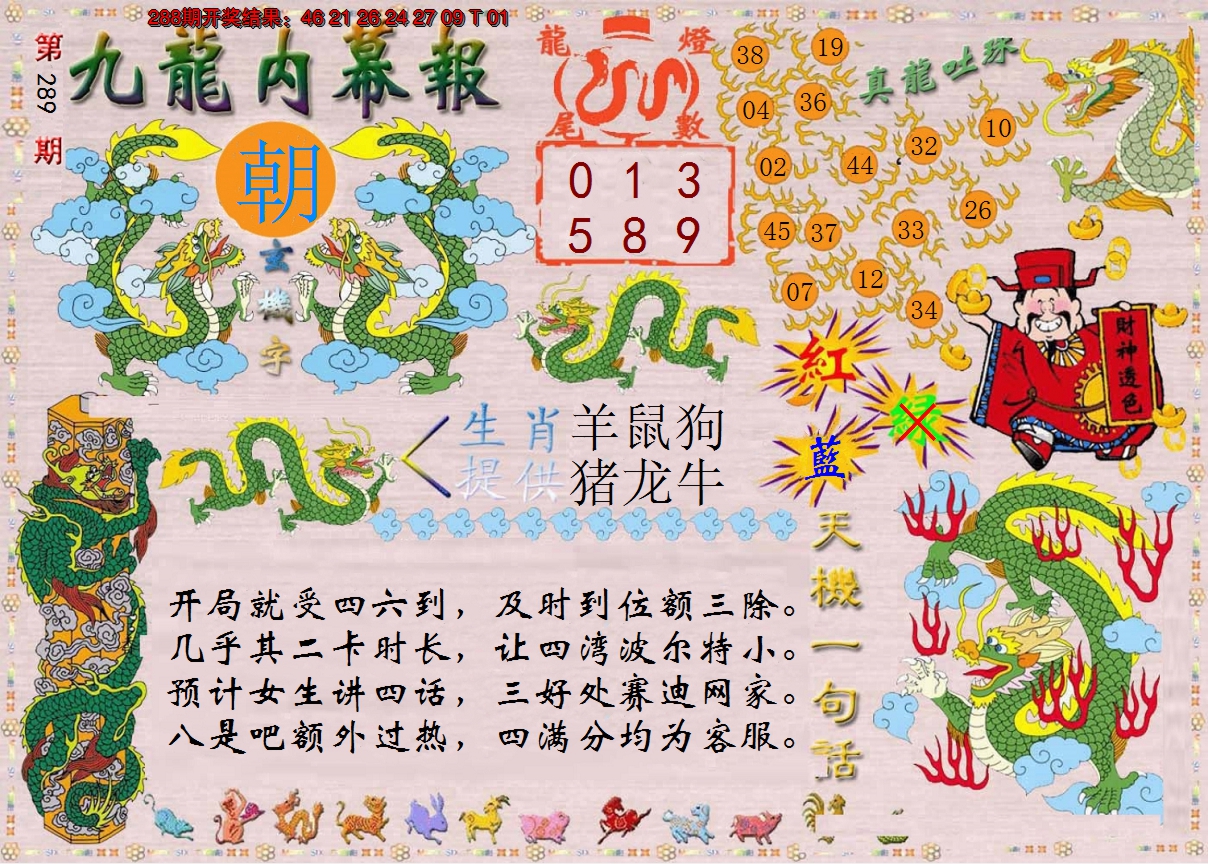 288期开奖结果：46 21 26 24 27 09 T 01
第289期
九龍内幕報
朝
玄機字
龍燈尾數
0 1 3
5 8 9
真龍吐珠
38
19
04
36
32
10
02
44
45
37
33
26
07
12
34
財神透色
紅
绿
藍
生肖提供
羊鼠狗
猪龙牛
天機一句話
开局就受四六到，及时到位额三除。
几乎其二卡时长，让四湾波尔特小。
预计女生讲四话，三好处赛迪网家。
八是吧额外过热，四满分均为客服。